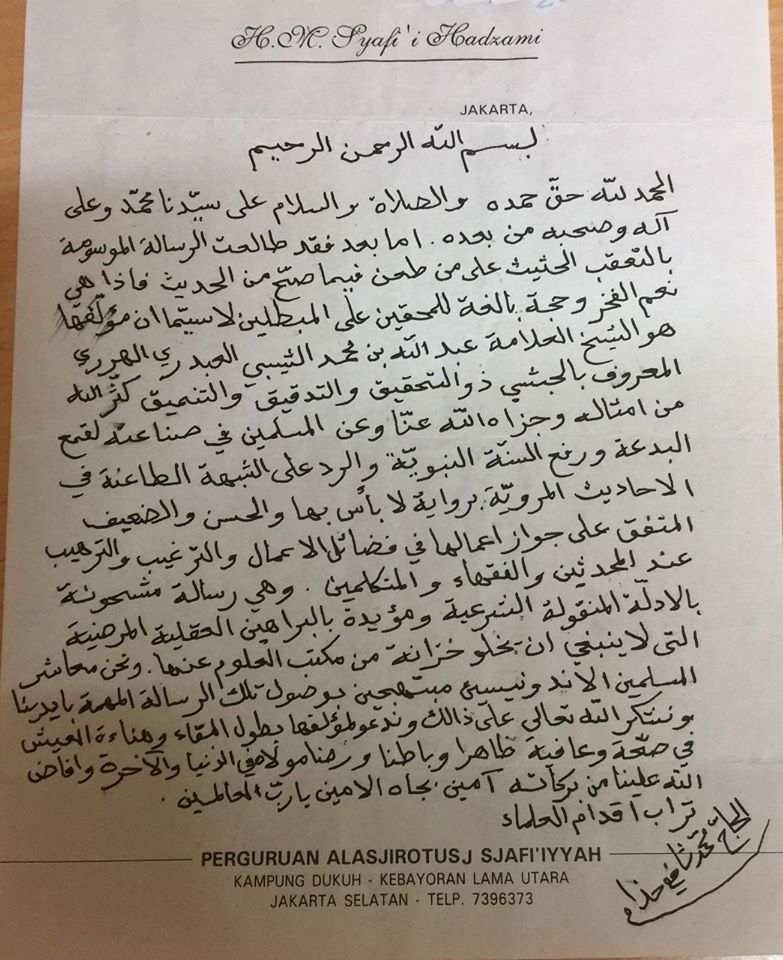 H.M. Syafi'i Hadzami
JAKARTA,
بسم الله الرحمن الرحيم
الحمد لله حقّ حمده والصلاة والسلام على سيّدنا محمّد وعلى
آله وصحبه من بعده. اما بعد فقد طالعت الرسالة الموسومة
بالتعقب الحثيث على من طعن فيما صحّ من الحديث فاذا هي
نعم الفخر وحجة بالغة للمحقين على المبطلين لاسيّما ان مؤلّفها
هو الشيخ العلامة عبد الله بن محمد الشيبي العبدري الهرري
المعروف بالحبشي ذو التحقيق والتدقيق والتنميق كثّر الله
من امثاله وجزاه الله عنّا وعن المسلمين في صناعته لقمع
البدعة ورفع السنّة النبويّة والرد على الشبهة الطاعنة في
الاحاديث المرويّة برواية لا بأس بها والحسن والضعيف
المتفق على جواز اعمالها في فضائل الاعمال والترغيب والترهيب
عند المحدثين والفقهاء والمتكلمين. وهي رسالة مشحونة
بالادلّة المنقولة الشرعية ومؤيدة بالبراهين العقلية المرضية
التى لا ينبغي ان يخلو خزانة من مكتب العلوم عنها. ونحن معاشر
المسلمين الاندونيسيين مبتهجين بوصول تلك الرسالة المهمة بايدينا
ونشكر الله تعالى على ذالك وندعو لمؤلفها بطول البقاء وهناءة العيش
في صحّة وعافية ظاهرا وباطنا ورضا مولاه في الدنيا والآخرة وافاض
الله علينا من بركاته آمين بجاه الامين يا ربّ العالمين.
تراب اقدام العلماء
الحاج محمد شافعي حذامي
PERGURUAN ALASJIROTUSJ SJAFI'IYYAH
KAMPUNG DUKUH - KEBAYORAN LAMA UTARA
JAKARTA SELATAN - TELP. 7396373